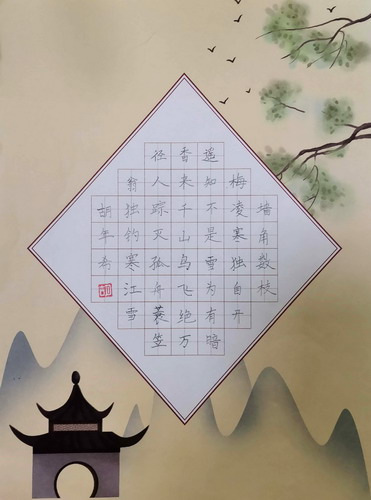 墙角数枝
梅凌寒独自开
遥知不是雪为有暗
香来千山鸟飞绝万
径人踪灭孤舟蓑笠
翁独钓寒江雪
胡年寿